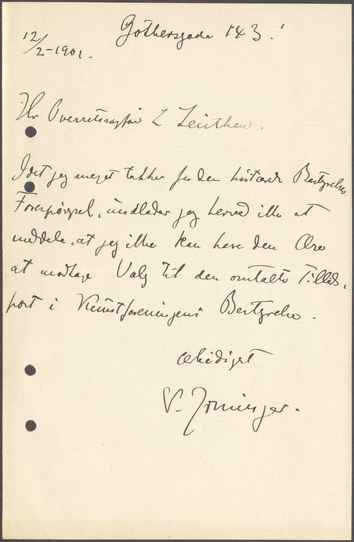 12/2-1901.
Gothersgade 143.
Hr Overretssagfør L Zeuthen.
Idet jeg meget takker for den Bestyrelse
Forespørgsel, undlader jeg herved ikke at
meddele, at jeg ikke kan have den Ære
at modtage Valg til den omtalte Tillids-
post i Kunstforeningens Bestyrelse.
ærbødigst
V.